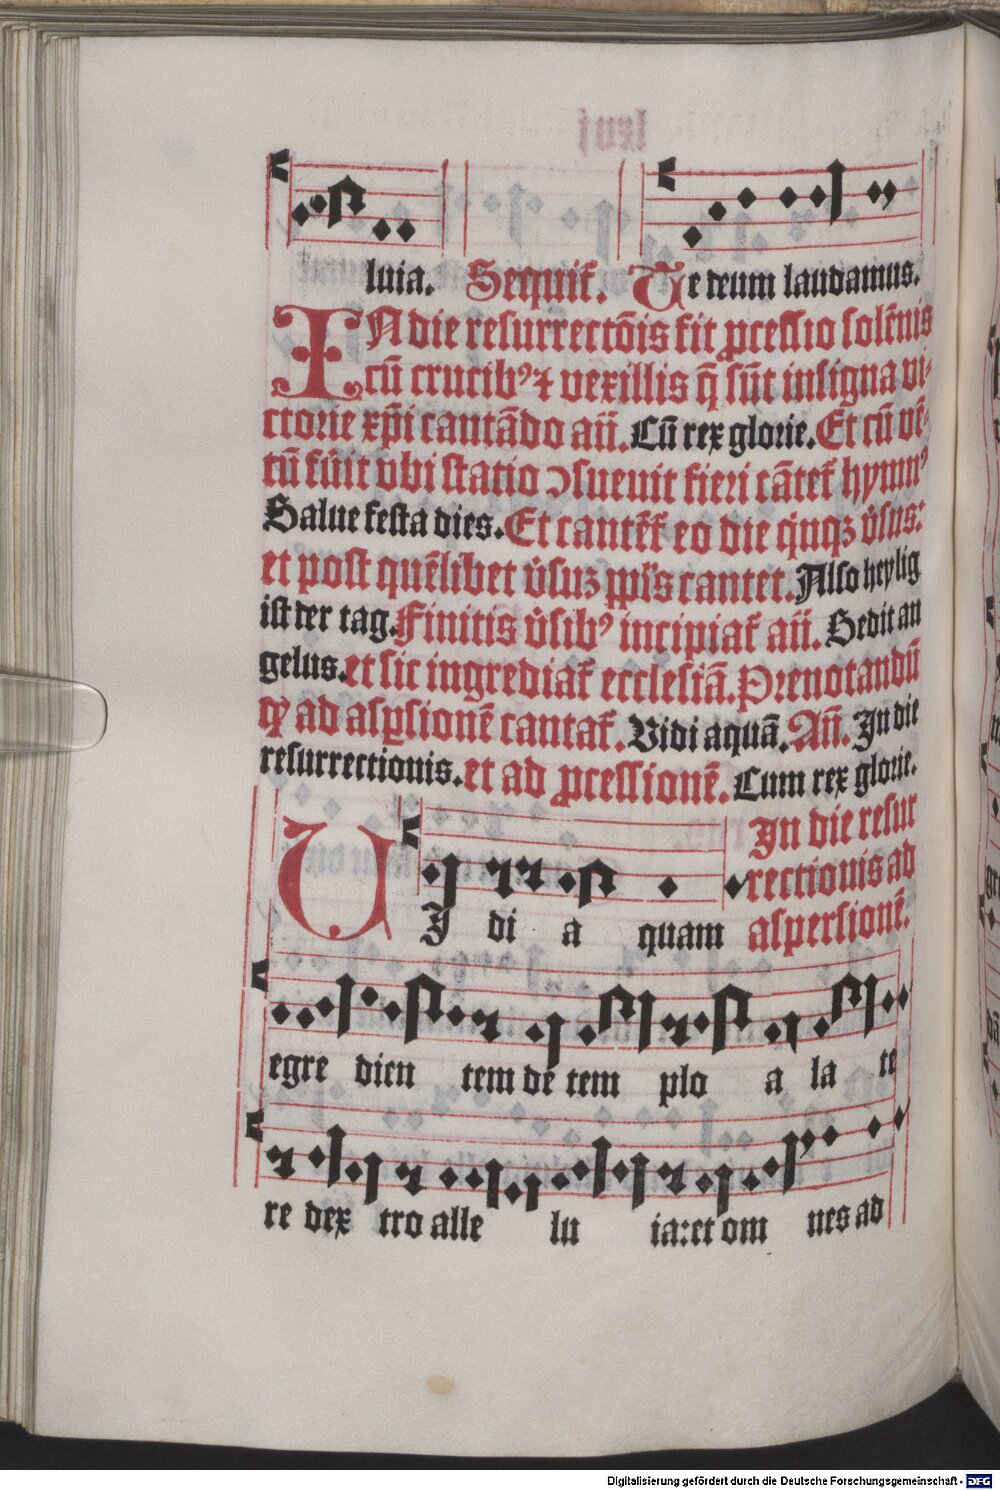 luia. Sequit᷑. Te deum laudamus.
IN die resurrectōis fit ꝓcessio solēnis
cū crucibꝰ ⁊ vexillis q̄ sūt insigna vi⸗
ctorie xp̄i cantādo an̄. Cū rex glorie. Et cū vē⸗
tū fūit vbi statio ↄsueuit fieri cātet᷑ hymnꝰ
Salue festa dies. Et cantēt᷑ eo die q̇nqꝫ v̉sus:
et post quēlibet v̉suꝫ ppl̓s cantet. Also heylig
ist der tag. Finitis v̉sibꝰ incipiat᷑ an̄. Sedit an
gelus. et sic ingrediat᷑ ecclesiā. Prenotandū
ꝙ ad aspersionē cantat᷑. Vidi aquā. An̄. In die
resurrectionis. et ad ꝓcessionē. Cum rex glorie.
In die resur
rectionis ad
aspersionē.
VI di a quam
egre dien tem de tem plo a la te
re dex tro alle lu ia: et om nes ad
Digitalisierung gefördert durch die Deutsche Forschungsgemeinschaft - DFG